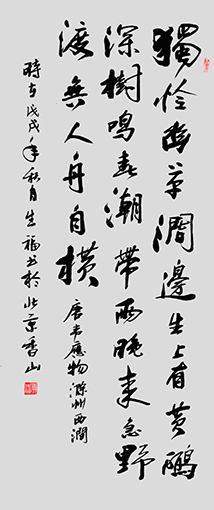 獨怜幽草澗邊生上有黄鸝
深樹鳴春潮帶雨晚来急野
渡無人舟自横 唐韦應物滁州西澗
時在戊戌年秋月生福书於北京香山